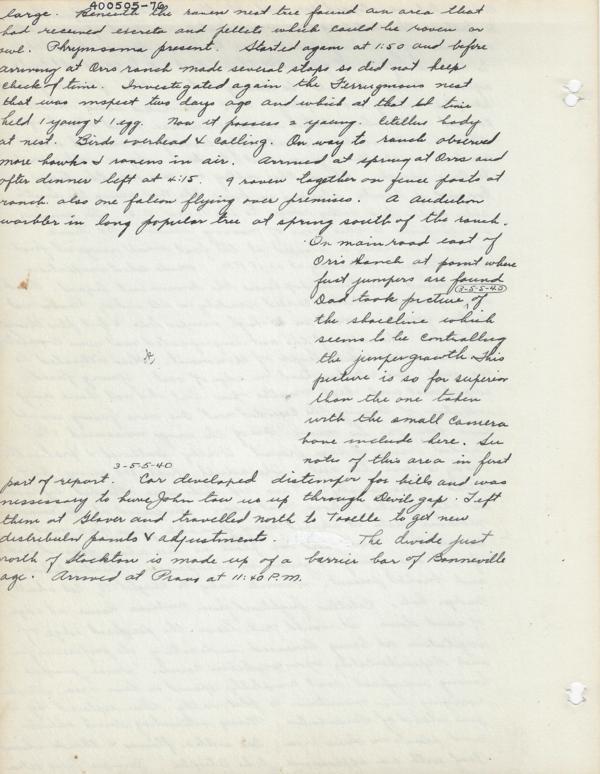 400505-76
large. Beneath the raven nest tree found an area that
had received excreta and pellets which could be raven or
owl. Phrynosoma present. Started again at 1:50 and before
arriving at Orrs ranch made several stops so did not keep
check of time. Investigated again the Ferrugnous nest
that was inspect two days ago and which at that time
held 1 young & 1 egg. Now it possess 2 young. Citellus body
at nest. Birds overhead & calling. On way to ranch observed
more hawks & ravens in air. Arrived at spring at Orrs and
after dinner left at 4:15. 9 raven together on fence posts at
ranch also one falcon flying over premises. A Audubon
warbler in long popular tree at spring south of the ranch.
On main road east of
Orrs Ranch at point where
first junipers are found
3-5-5-40
Dad took picture, of
the shoreline which
seems to be controlling
the juniper growth. This
picture is so far superior
than the one taken
with the small camera
have include here. See
notes of this area in first
3-5-5-40
part of report. Car developed distemper for hills and was
nessessary to have John tow us up through Devils gap. Left
them at Glover and travelled north to Tooelle to get new
distributer points & adjustments. The divide just
north of Stockton is made up of a barrier bar of Bonneville
age. Arrived at Provo at 11:40 P.M.